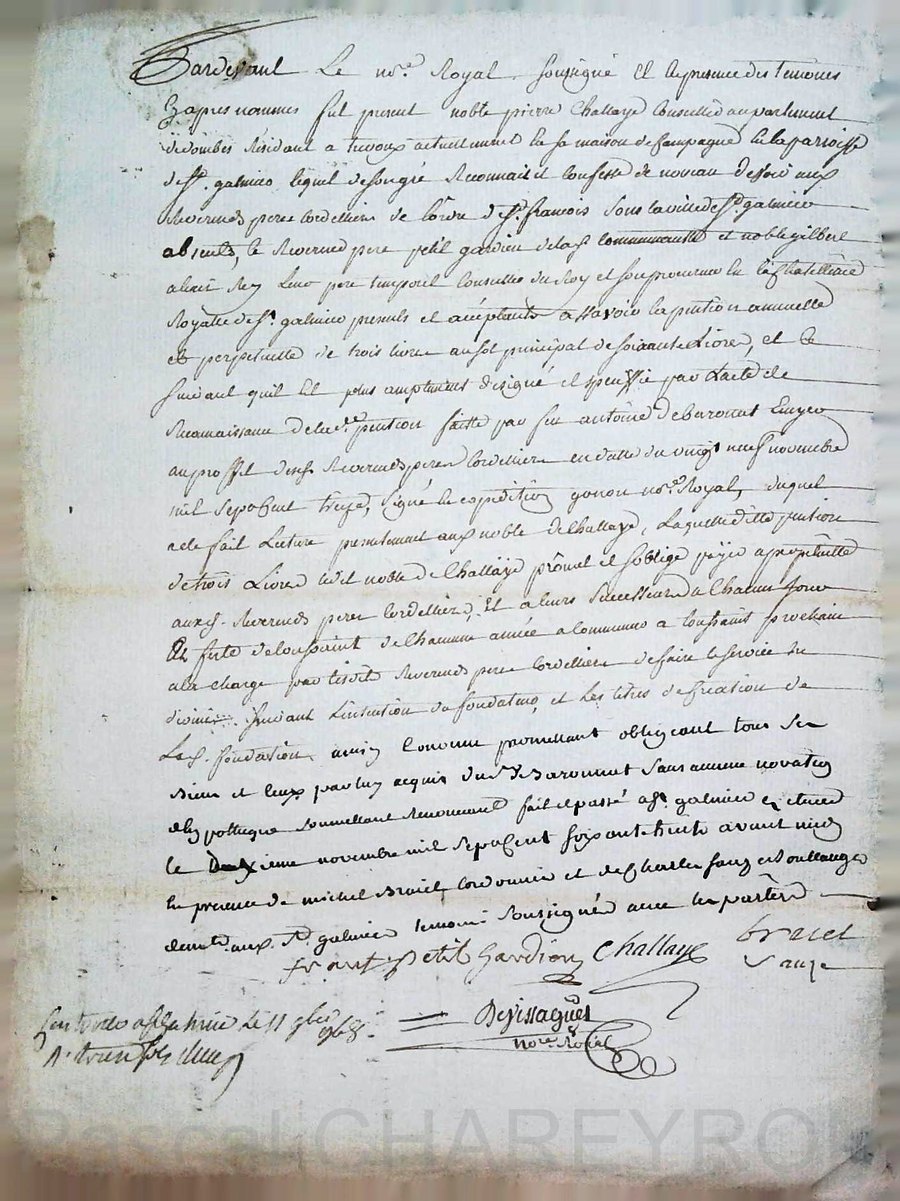 Pardevant Le no.re Royal soussigné Et En presence des temoins
Cy apres nommes fut present noble pierre Challaye Conseiller au parlement
de dombes Résidant a trevoux actuellement En sa maison de Campagne En la paroisse
de St. galmier, lequel de son gré Reconnait et Confesse de nouveau devoir aux
Reverends peres Cordelliers de l'ordre de St. francois sous la ville de St. galmier
absents, le Reverend pere petit gardien de la d. Communauté et noble gilbert
pere temporel Conseiller du Roy et son procureur En la Chatellenie
Royalle de St. galmier presents et acceptants assavoir la pention annuelle
et perpetuelle de trois livres au sol principal de soixante Livres, et Ce
suivant quil Est plus amplement designé et speciffié par L'acte de
Reconnaissance de la d.te pention faitte par feu antoine debaronnat Ecuyer
au proffit desd. Reverends peres Cordelliers en datte du vingt neuf novembre
mil sept Cent treize, signé En expedition gonon no.re Royal, duquel
a ete fait Lecture presentement aud. noble de Challaye, Laquelle ditte pention
de trois Livres led. noble de Challaye promet et soblige payer a perpetuité
auxd. Reverends peres Cordelliers, Et a leurs successeurs a Chacun jour
Et feste de toussaint de Chacune année a Commencer a toussaint prochain
a la charge par lesdits Reverends peres Cordelliers de faire le service
divin suivant L'intention du fondateur, et Les titres de Creation de
La d. fondation, ainsy Convenu promettant obligeant tous ses
Biens et Ceux par luy acquis dud. Sr. de Baronnat sans aucune novation
d'hypotheque soumettant Renoncant fait et passé a St. galmier
le Deuxieme novembre mil sept Cent soixante huit avant midy
En presence de michel Bruiet Cordonnier et de Charles sauze Boullanger
demt. aud. St. galmier temoins soussignés avec les parties
fr. ant. petit Gardien Challaye bruiet
Sauze
Deyissagues
no.re Roial
Controllé a St galmier Le 11 9bre 1768